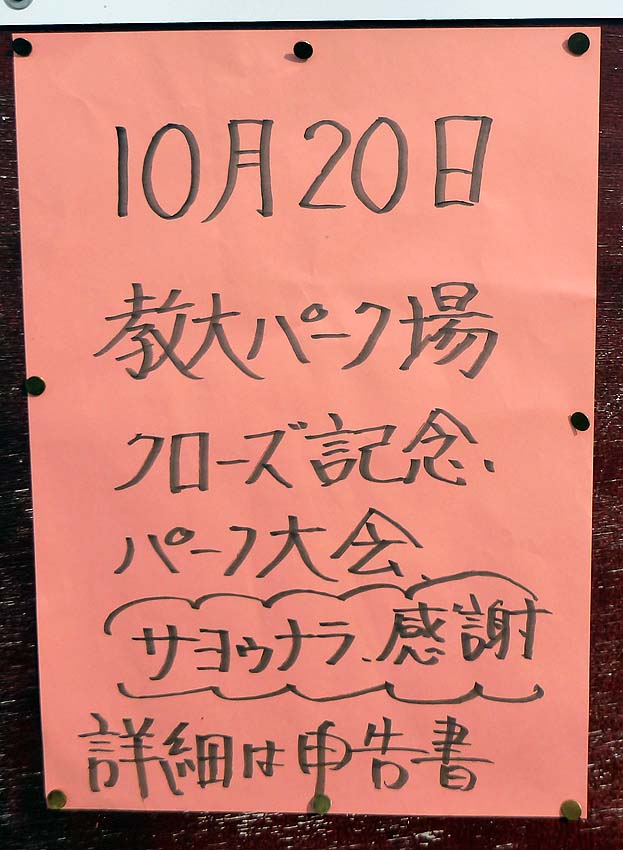 10月20日
教大パーク場
クローズ記念、
パーク大会、
サヨウナラ、感謝
詳細は申告書